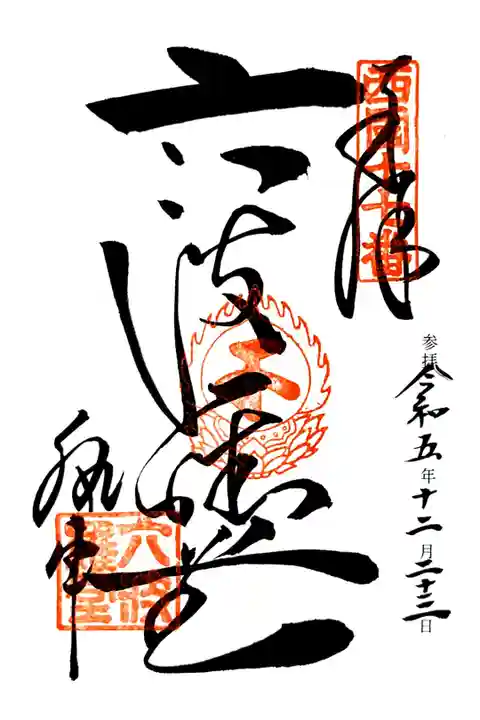 奉拝
西國十七番
参拝 令和五年十二月二十三日
六波羅堂
執事
六波
羅堂